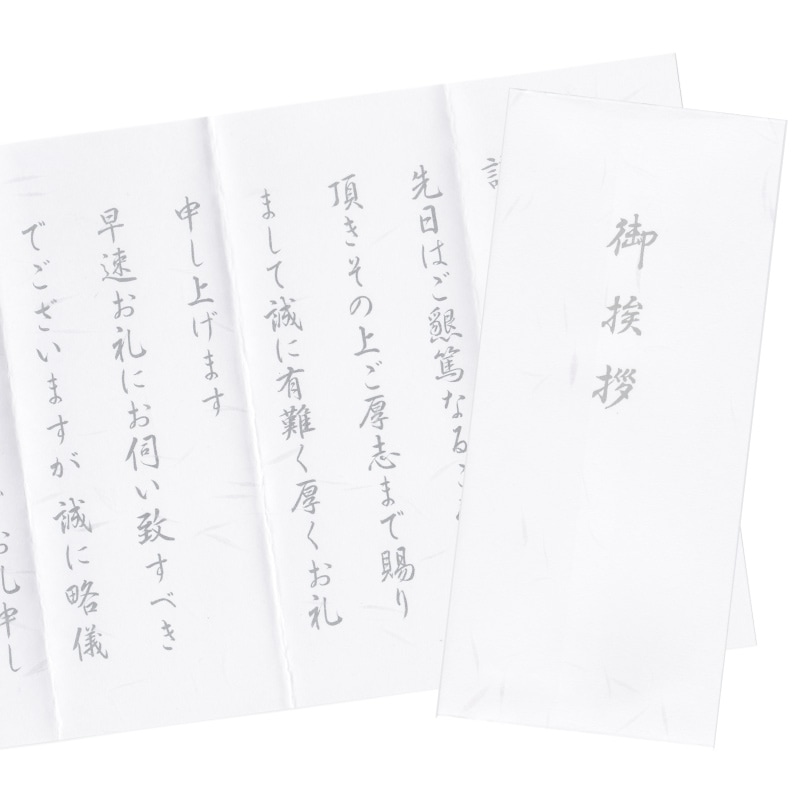 御挨拶
先日はご懇篤なる
頂きその上ご厚志まで賜り
まして誠に有難く厚くお礼
申し上げます
早速お礼にお伺い致すべき
でございますが誠に略儀
お礼申し